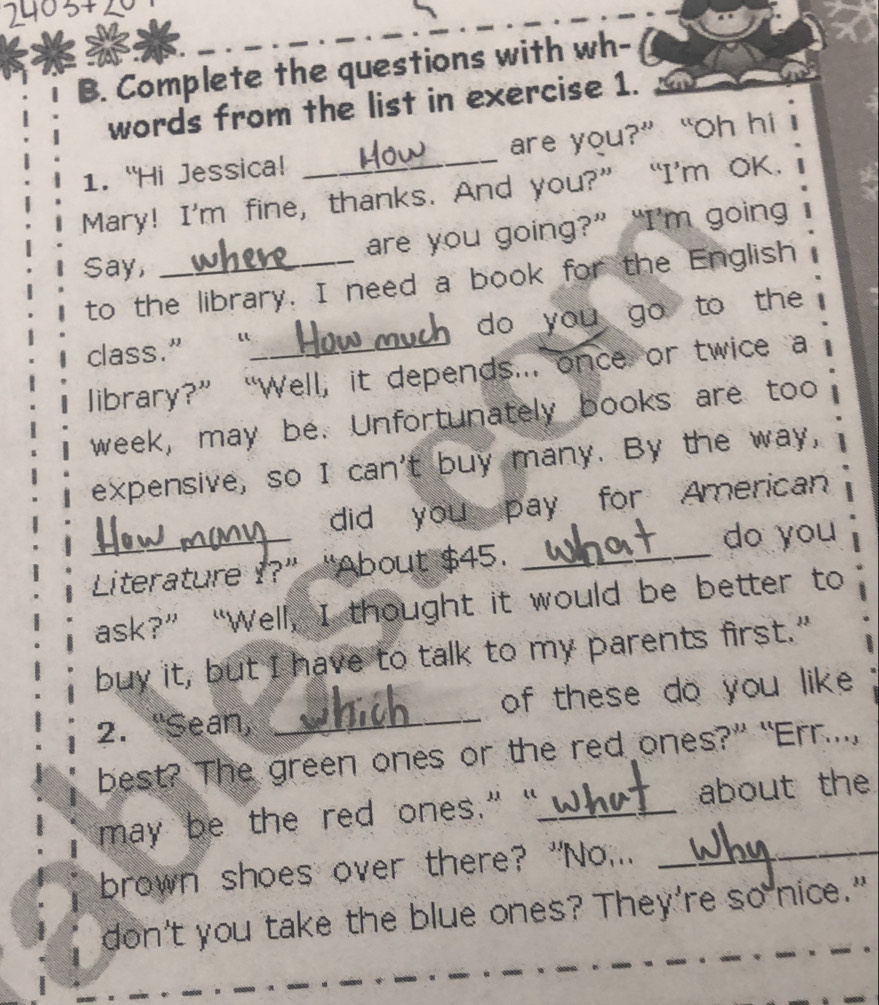 B. Complete the questions with wh-
words from the list in exercise 1.
1. "Hi Jessica! How are you?" "Oh hi
Mary! I'm fine, thanks. And you?" "I'm OK.
Say, where are you going?" "I'm going
to the library. I need a book for the English
class." "How much do you go to the
library?" "Well, it depends... once or twice a
week, may be. Unfortunately books are too
expensive, so I can't buy many. By the way,
How many did you pay for American
Literature 1?" "About $45. what do you
ask?" "Well, I thought it would be better to
buy it, but I have to talk to my parents first."
2. "Sean, which of these do you like
best? The green ones or the red ones?" "Err...,
may be the red ones." "what about the
brown shoes over there? "No... Why
don't you take the blue ones? They're so nice."